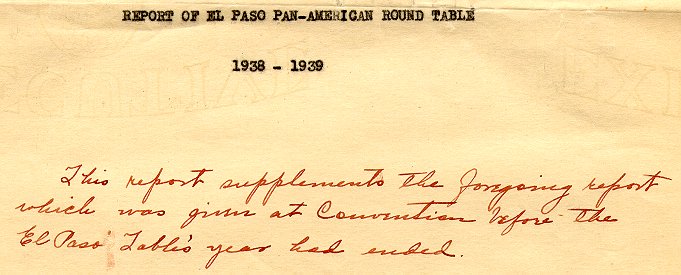 REPORT OF EL PASO PAN-AMERICAN ROUND TABLE
1938 - 1939
This report supplements the foregoing report
which was given at Convention before the
El Paso Table's year had ended.